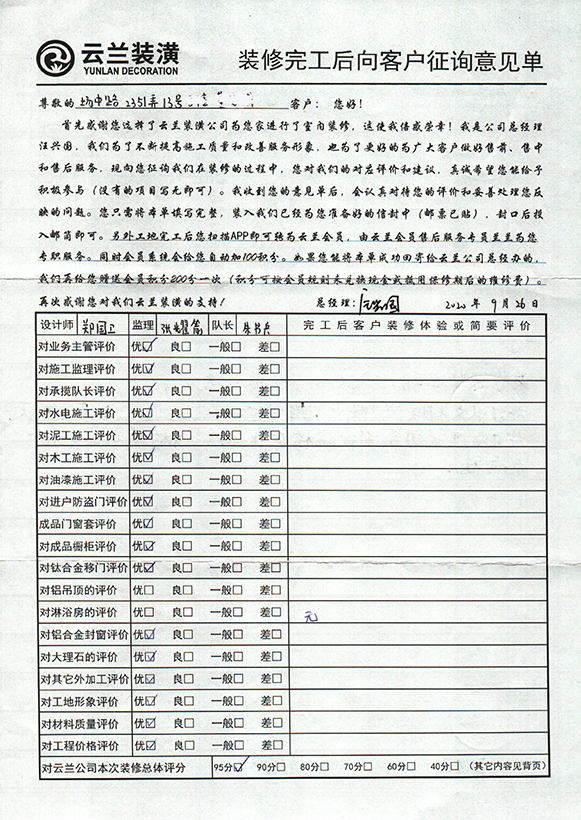 云兰装潢
YUNLAN DECORATION
装修完工后向客户征询意见单
尊敬的 杨申路2351弄13号 客户：您好！
首先感谢您选择了云兰装潢公司为您家进行了室内装修，这使我倍感荣幸！我是公司总经理
汪兴国，我们为了不断提高施工质量和改善服务形象，也为了更好的为广大客户做好售前、售中
和售后服务，现向您征询我们在装修的过程中，您对我们的对应评价和建议，真诚希望您能给予
积极参与（没有的项目写无即可）。我收到您的意见单后，会认真对待您的评价和妥善处理您反
映的问题。您只需将本单填写完整，装入我们已经为您准备好的信封中（邮票已贴），封口后投
入邮筒即可。另外工地完工后您扫描APP即可转为云兰会员，由云兰会员售后服务专员兰兰为您
专职服务。同时会员系统会给您自动加100积分。如果您能将本单成功回寄给云兰公司总经办的，
我们再给您赠送会员积分200分一次（积分可按会员规则来兑换现金或抵用保修期后的维修费）。
再次感谢您对我们云兰装潢的支持！ 总经理： 2020年9月26日
设计师 郑国卫 监理 队长 完工后客户装修体验或简要评价
对业务主管评价 优☑ 良□ 一般□ 差□
对施工监理评价 优☑ 良□ 一般□ 差□
对承揽队长评价 优☑ 良□ 一般□ 差□
对水电施工评价 优☑ 良□ 一般□ 差□
对泥工施工评价 优☑ 良□ 一般□ 差□
对木工施工评价 优☑ 良□ 一般□ 差□
对油漆施工评价 优☑ 良□ 一般□ 差□
对进户防盗门评价 优☑ 良□ 一般□ 差□
成品门窗套评价 优☑ 良□ 一般□ 差□
对成品橱柜评价 优☑ 良□ 一般□ 差□
对钛合金移门评价 优☑ 良□ 一般□ 差□
对铝吊顶的评价 优□ 良□ 一般□ 差□
对淋浴房的评价 优□ 良□ 一般□ 差□ 元
对铝合金封窗评价 优☑ 良□ 一般□ 差□
对大理石的评价 优☑ 良□ 一般□ 差□
对其它外加工评价 优☑ 良□ 一般□ 差□
对工地形象评价 优☑ 良□ 一般□ 差□
对材料质量评价 优☑ 良□ 一般□ 差□
对工程价格评价 优☑ 良□ 一般□ 差□
对云兰公司本次装修总体评分 95分☑ 90分□ 80分□ 70分□ 60分□ 40分□ （其它内容见背页）